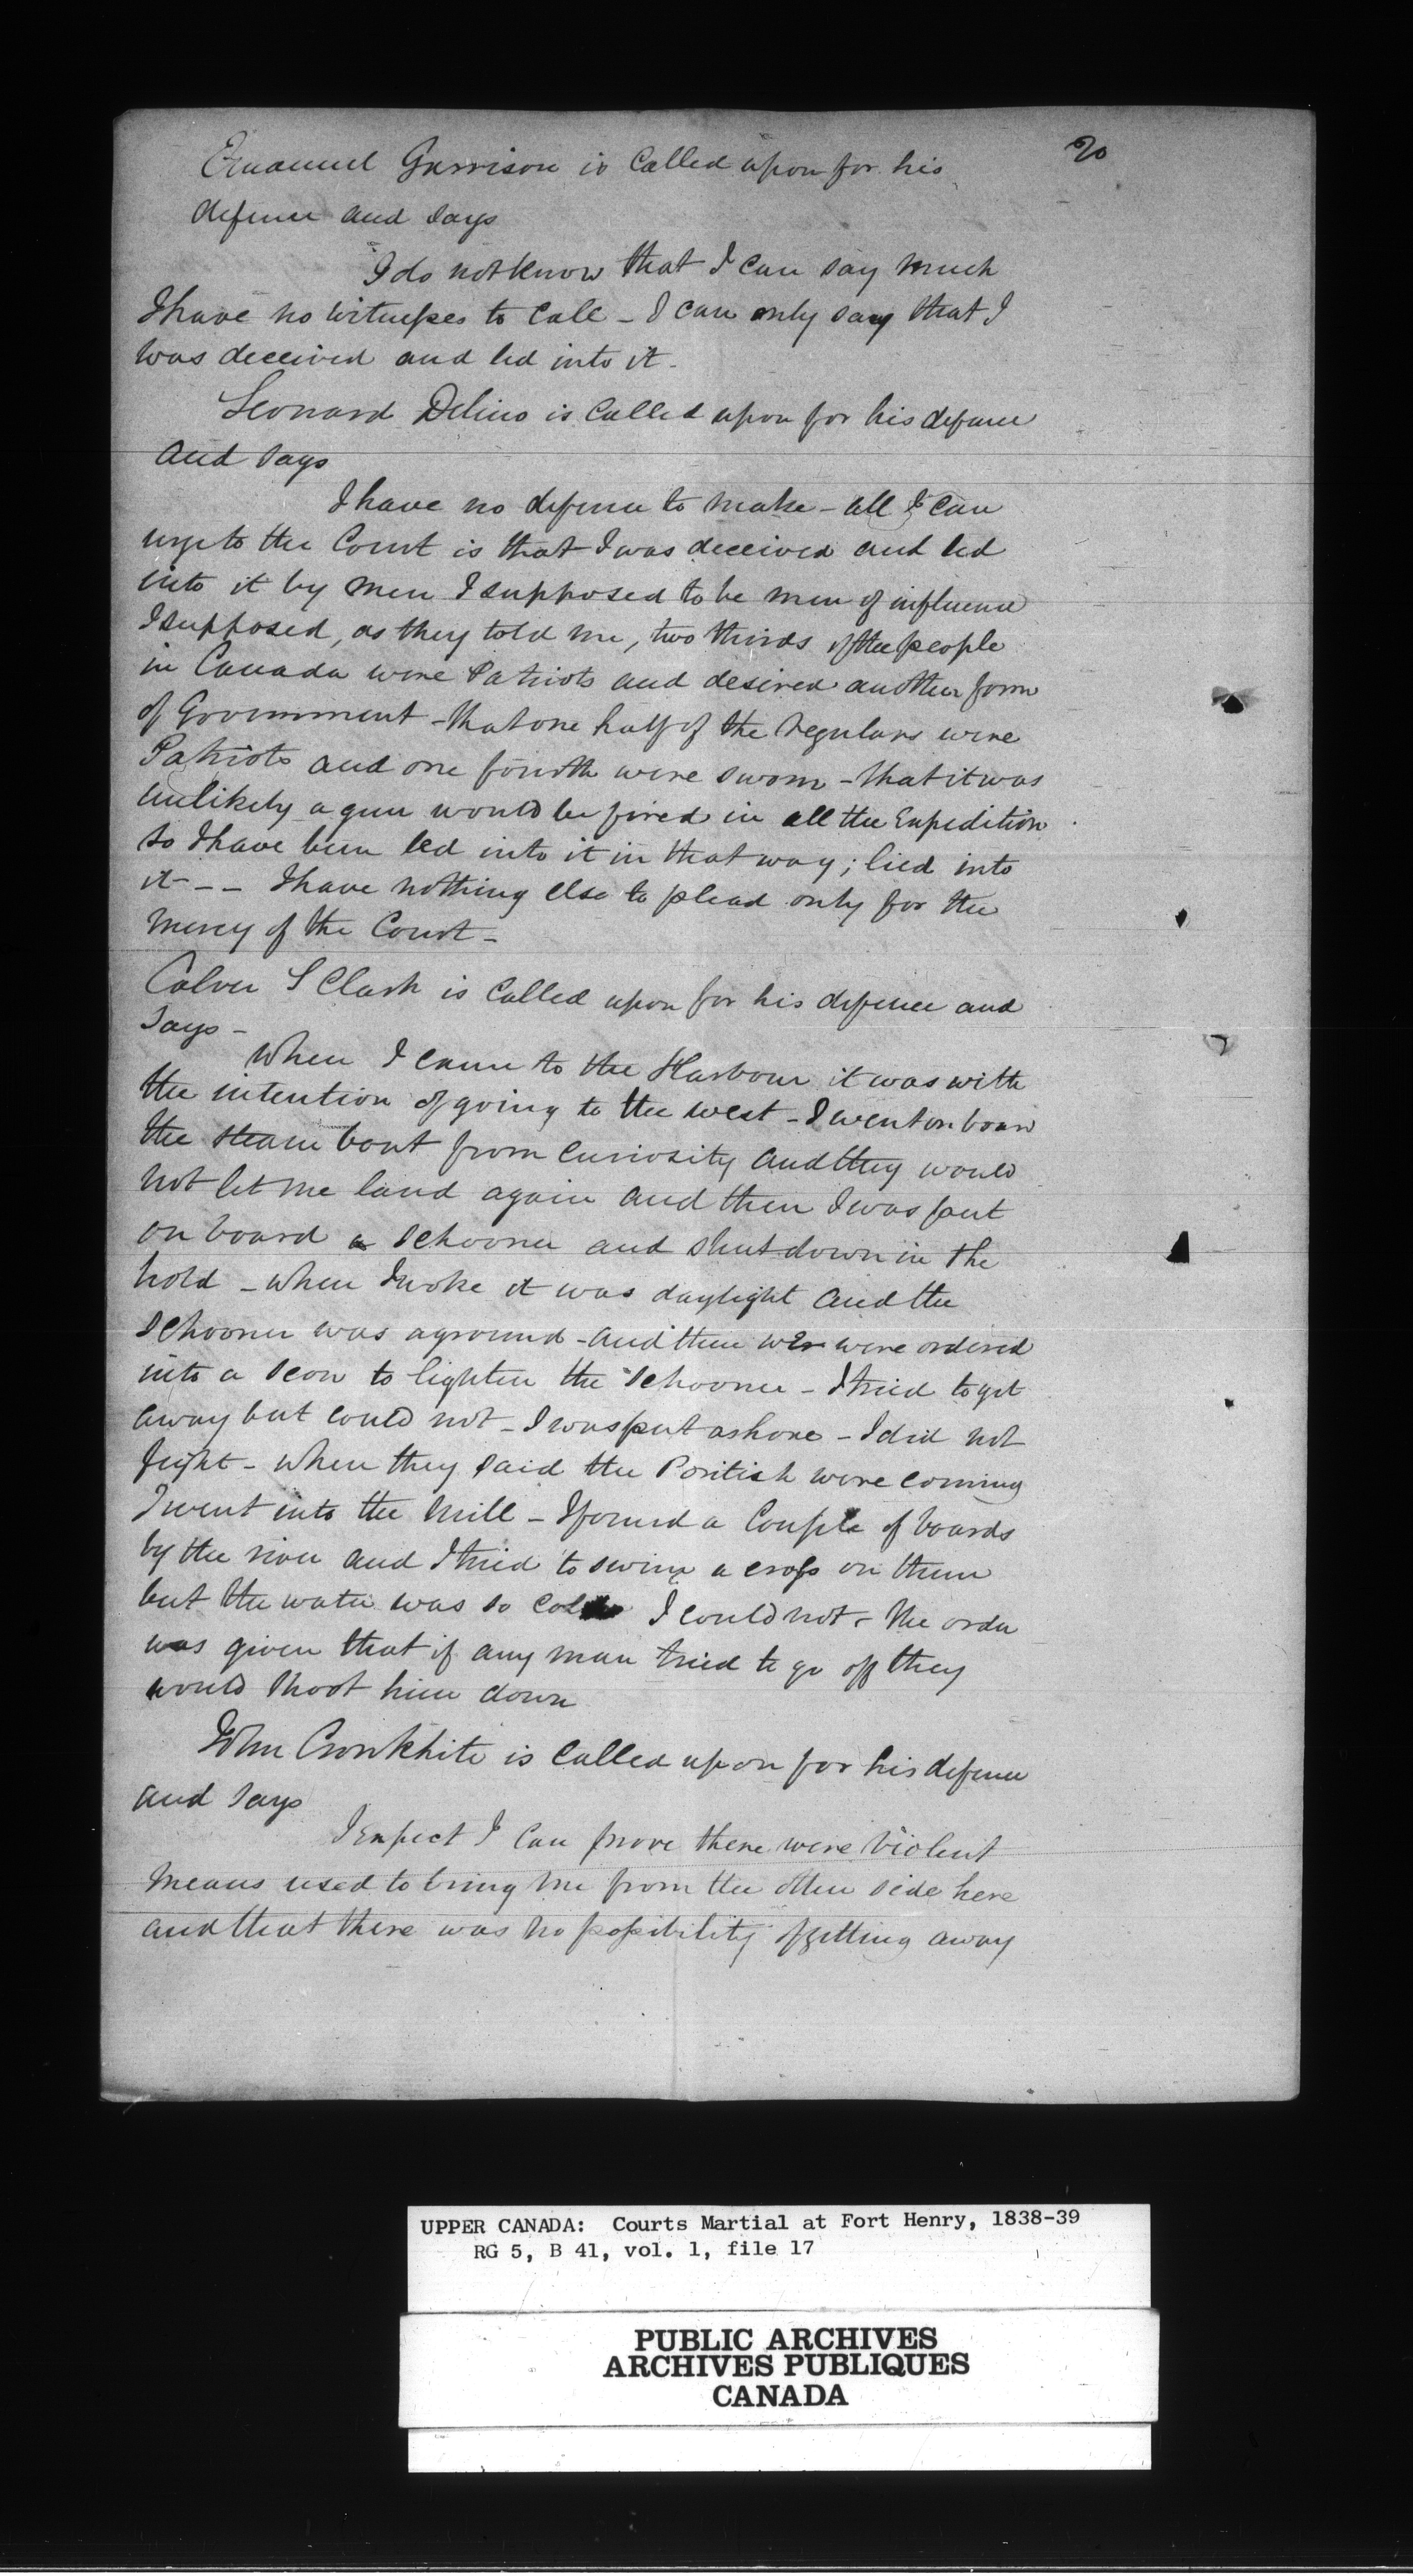 20
Emanuel Garrison is Called upon for his
defence and says
I do not know that I can say much
I have no witnesses to Call - I can only say that I
was deceived and led into it -
Leonard Delino is Called upon for his defence
and says
I have no defence to make - all I can
urge to the Court is that I was deceived and led
into it by men I supposed to be men of influence
I supposed, as they told me, two thirds of the people
in Canada were Patriots and desired another form
of Government - that one half of the regulars were
Patriots and one fourth were sworn - that it was
unlikely a gun would be fired in all the Expedition
so I have been led into it in that way; lied into
it - - - I have nothing else to plead only for the
mercy of the Court -
Calver S Clark is Called upon for his defence and
says -
When I came to the Harbour it was with
the intention of going to the west - I went on board
the steam boat from Curiosity and they would
not let me land again and then I was put
on board a schooner and shut down in the
hold - when I woke it was daylight and the
schooner was aground - and then we were ordered
into a scow to lighten the schooner - I tried to get
away but could not - I was put ashore - I did not
fight - when they said the British were coming
I went into the mill - I found a Couple of boards
by the river and I tried to swim across on them
but the water was so cold I could not - the order
was given that if any man tried to go off they
would shoot him down
John Cronkhite is Called upon for his defence
and says
I Expect I can prove there were violent
means used to bring me from the other side here
and that there was no possibility of getting away
UPPER CANADA: Courts Martial at Fort Henry, 1838-39
RG 5, B 41, vol. 1, file 17
PUBLIC ARCHIVES
ARCHIVES PUBLIQUES
CANADA